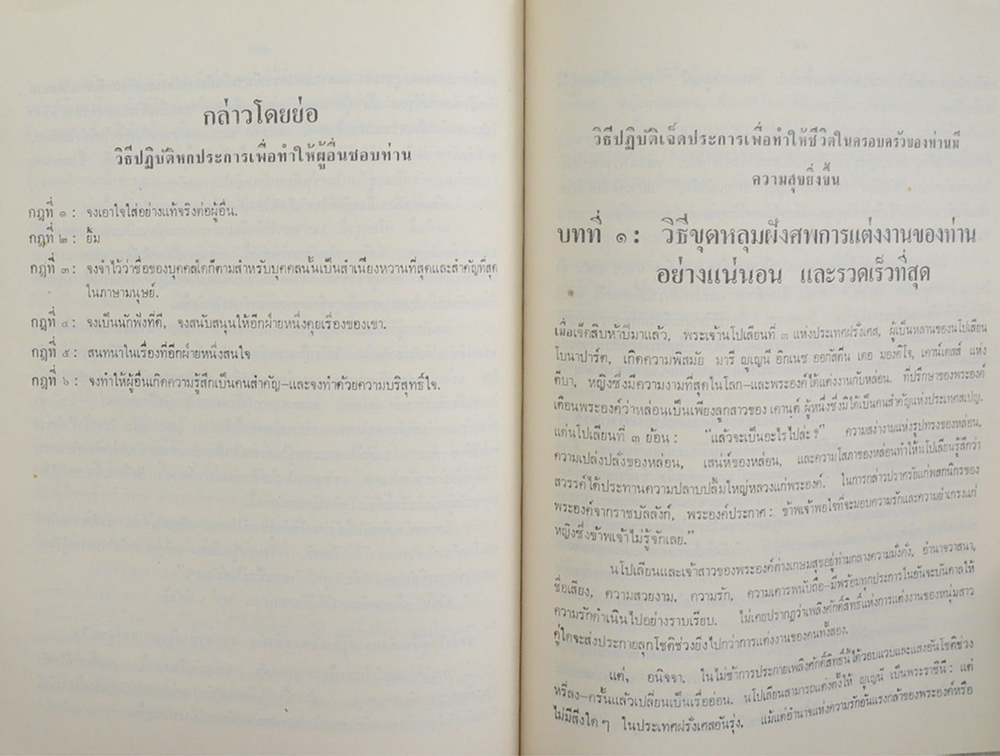 กล่าวโดยย่อ
วิธีปฏิบัติหกประการเพื่อทำให้ผู้อื่นชอบท่าน
กฎที่ ๑ : จงเอาใจใส่อย่างแท้จริงต่อผู้อื่น.
กฎที่ ๒ : ยิ้ม
กฎที่ ๓ : จงจำไว้ว่าชื่อของบุคคลใดก็ตามสำหรับบุคคลนั้นเป็นสำเนียงหวานที่สุดและสำคัญที่สุด
ในภาษามนุษย์.
กฎที่ ๔ : จงเป็นนักฟังที่ดี, จงสนับสนุนให้อีกฝ่ายหนึ่งคุยเรื่องของเขา.
กฎที่ ๕ : สนทนาในเรื่องที่อีกฝ่ายหนึ่งสนใจ
กฎที่ ๖ : จงทำให้ผู้อื่นเกิดความรู้สึกเป็นคนสำคัญ–และจงทำด้วยความบริสุทธิ์ใจ.
วิธีปฏิบัติเจ็ดประการเพื่อทำให้ชีวิตในครอบครัวของท่านมี
ความสุขยิ่งขึ้น
บทที่ ๑ : วิธีขุดหลุมฝังศพการแต่งงานของท่าน
อย่างแน่นอน และรวดเร็วที่สุด
เมื่อเจ็ดสิบห้าปีมาแล้ว, พระเจ้านโปเลียนที่ ๓ แห่งประเทศฝรั่งเศส, ผู้เป็นหลานของนโปเลียน
โบนาปาร์ต, เกิดความพิสมัย มารี ยูเญนี อิกเนซ ออกัสตีน เดอ มองติโจ, เคาน์เตสส์ แห่ง
ตีบา, หญิงซึ่งมีความงามที่สุดในโลก–และพระองค์ได้แต่งงานกับหล่อน. ที่ปรึกษาของพระองค์
เตือนพระองค์ว่าหล่อนเป็นเพียงลูกสาวของ เคานต์ ผู้หนึ่งซึ่งมิได้เป็นคนสำคัญแห่งประเทศสเปญ.
แต่นโปเลียนที่ ๓ ย้อน : "แล้วจะเป็นอะไรไปล่ะ ?" ความสง่างามแห่งรูปทรงของหล่อน,
ความเปล่งปลั่งของหล่อน, เสน่ห์ของหล่อน, และความโสภาของหล่อนทำให้นโปเลียนรู้สึกว่า
สวรรค์ได้ประทานความปลาบปลื้มใหญ่หลวงแก่พระองค์. ในการกล่าวปราศรัยแก่พสกนิกรของ
พระองค์จากราชบัลลังก์, พระองค์ประกาศ : ข้าพเจ้าพอใจที่จะมอบความรักและความยำเกรงแก่
หญิงซึ่งข้าพเจ้าไม่รู้จักเลย."
นโปเลียนและเจ้าสาวของพระองค์ต่างเกษมสุขอยู่ท่ามกลางความมั่งคั่ง, อำนาจวาสนา,
ชื่อเสียง, ความสวยงาม, ความรัก, ความเคารพนับถือ–มีพร้อมทุกประการในอันจะบันดาลให้
ความรักดำเนินไปอย่างราบเรียบ. ไม่เคยปรากฏว่าเพลิงศักดิ์สิทธิ์แห่งการแต่งงานของหนุ่มสาว
คู่ใดจะส่งประกายลุกโชติช่วงยิ่งไปกว่าการแต่งงานของคนทั้งสอง.
แต่, อนิจจา. ในไม่ช้าการประกายเพลิงศักดิ์สิทธิ์นี้ได้วอบแวบและแสงอันโชติช่วง
หรี่ลง–ครั้นแล้วเปลี่ยนเป็นเรื่ออ่อน. นโปเลียนสามารถแต่งตั้งให้ ยูเญนี เป็นพระราชินี : แต่
ไม่มีสิ่งใด ๆ ในประเทศฝรั่งเศสอันรุ่ง, แม้แต่อำนาจแห่งความรักอันแรงกล้าของพระองค์หรือ